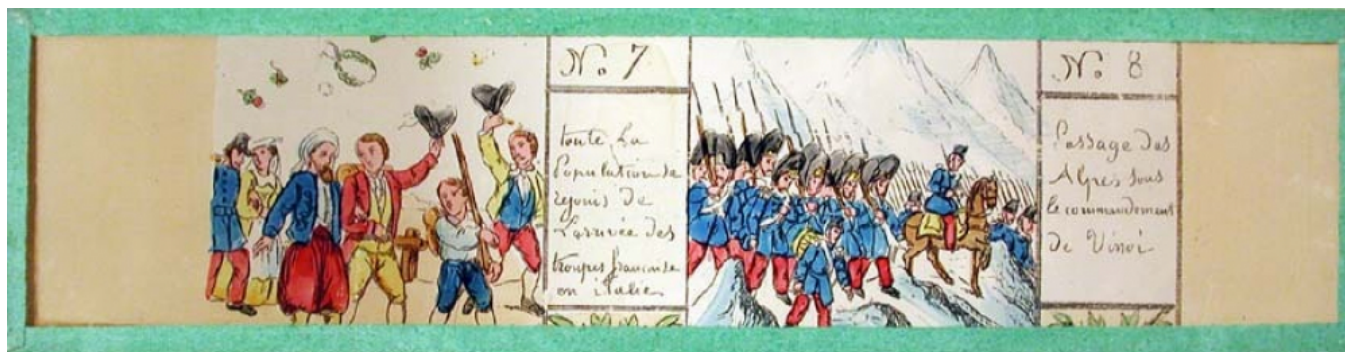 No 7
toute La
Population se
rejouis de
L'arrivée des
troupes francaise
en italie
No 8
Passage des
Alpes sous
le commandement
de Vinoi